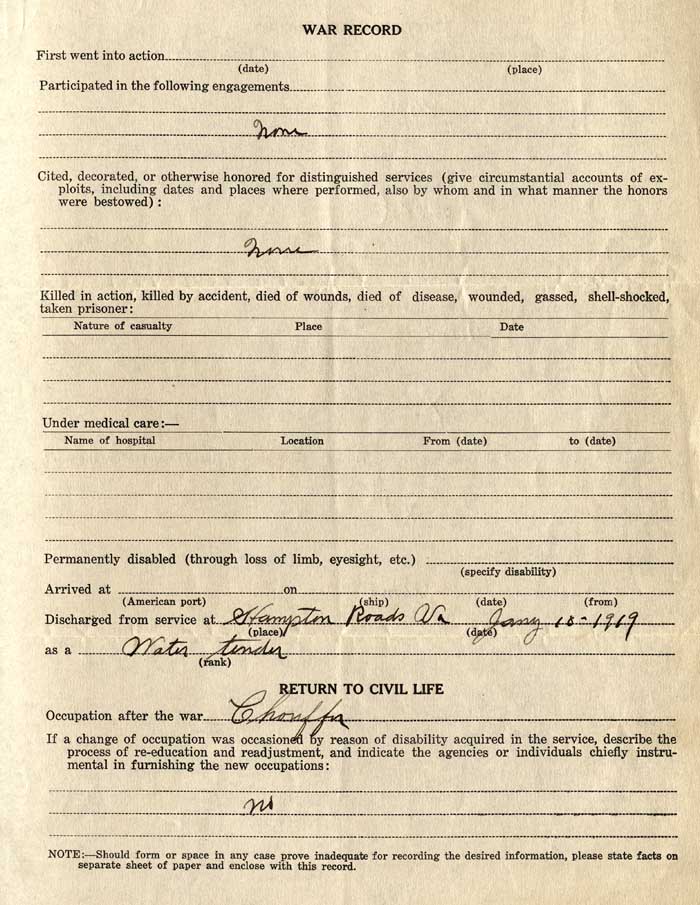 WAR RECORD
First went into action
(date) (place)
Participated in the following engagements
None
Cited, decorated, or otherwise honored for distinguished services (give circumstantial accounts of ex-
ploits, including dates and places where performed, also by whom and in what manner the honors
were bestowed) :
None
Killed in action, killed by accident, died of wounds, died of disease, wounded, gassed, shell-shocked,
taken prisoner:
Nature of casualty Place Date
Under medical care:—
Name of hospital Location From (date) to (date)
Permanently disabled (through loss of limb, eyesight, etc.)
(specify disability)
Arrived at on
(American port) (ship) (date) (from)
Discharged from service at Hampton Roads Va Jany 18-1919
(place) (date)
as a Water tender
(rank)
RETURN TO CIVIL LIFE
Occupation after the war
If a change of occupation was occasioned by reason of disability acquired in the service, describe the
process of re-education and readjustment, and indicate the agencies or individuals chiefly instru-
mental in furnishing the new occupations:
no
NOTE:—Should form or space in any case prove inadequate for recording the desired information, please state facts on
separate sheet of paper and enclose with this record.